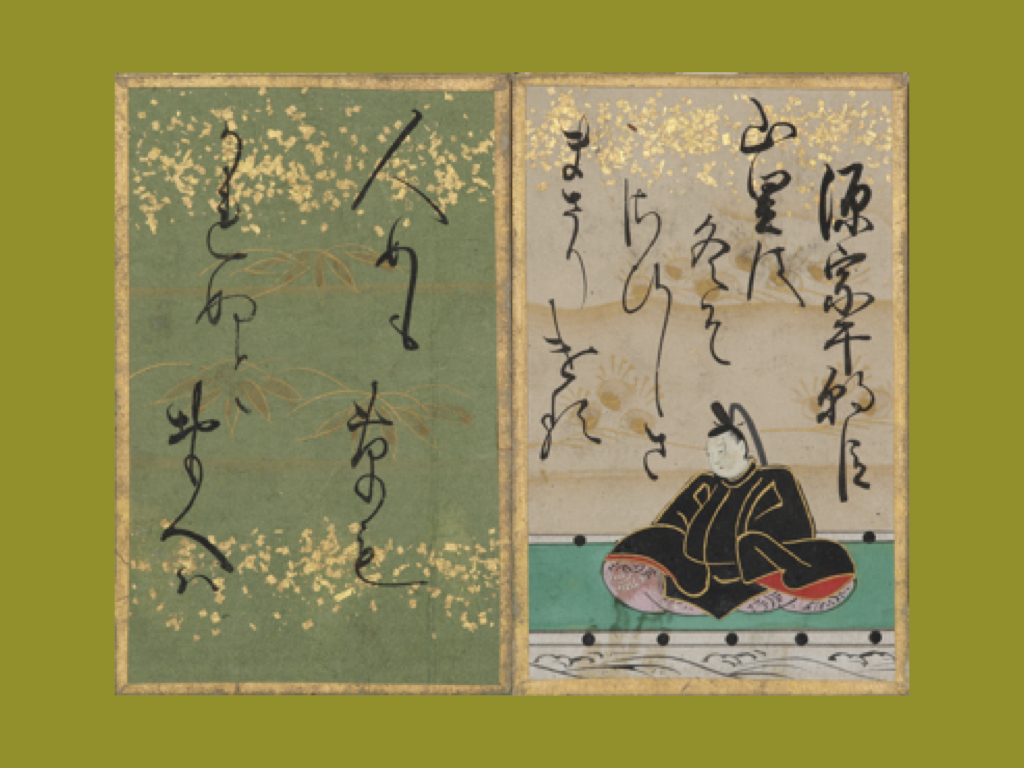 源宗于朝臣
山里は
冬そ
さひしさ
まさりける
人めも草も
かれぬと
おもへハ